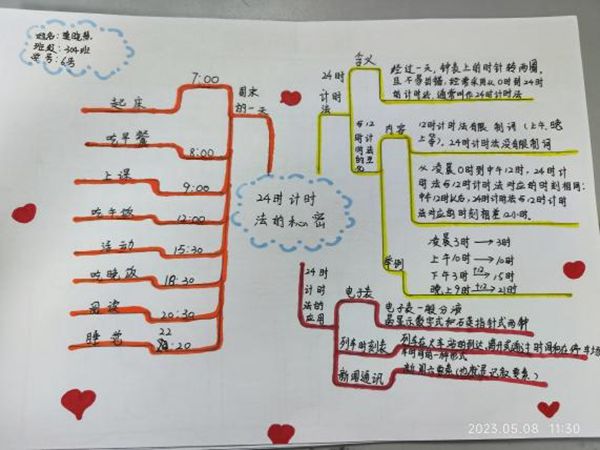 姓名:
班级: 304班
学号: 6号
24时计时
法的秘密
周末
的一天
7:00
起床
吃早餐
8:00
上课
9:00
吃午饭
12:00
活动
15:30
吃晚饭
18:30
阅读
20:30
睡觉
22
:20
24时
计时
法
含义
经过一天,钟表上的时针转两圈,
且不易出错,经常采用从0时到24时
的计时法,通常叫作24时计时法
与12
时计
时法
内容
12时计时法有限制词(上午,晚
上等),24时计时法没有限制词
从凌晨0时到中午12时,24时计
时法与12时计时法对应的时刻相同;
中午12时以后,24时计时法与12时计时
法对应的时刻相差12小时。
举例
凌晨3时→3时
上午10时→10时
下午3时+12→15时
晚上9时+12→21时
24时
计时
法的
应用
电子表
电子表一般分液
晶显示数字式和石英指针式两种
列车时刻表
列车在火车站的到达、离开或通过时间和在停车场
新闻通讯
新闻六要素
2023.05.08 11:30